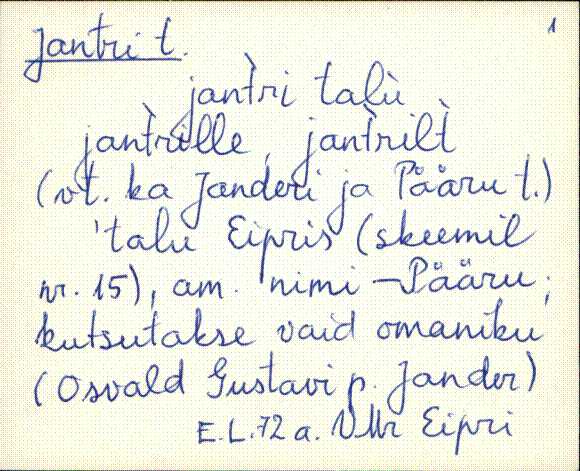 Jantri t. 1
jant̀ri talù
jant̀rille, jant̀rilt̀
(vt. ka Janderi ja Pääru t.)
'talu Eipris (skeemil
nr. 15), am. nimi – Pääru;
kutsutakse vaid omaniku
(Osvald Gustavi p. Jander)
E.L. 72 a. VMr Eipri